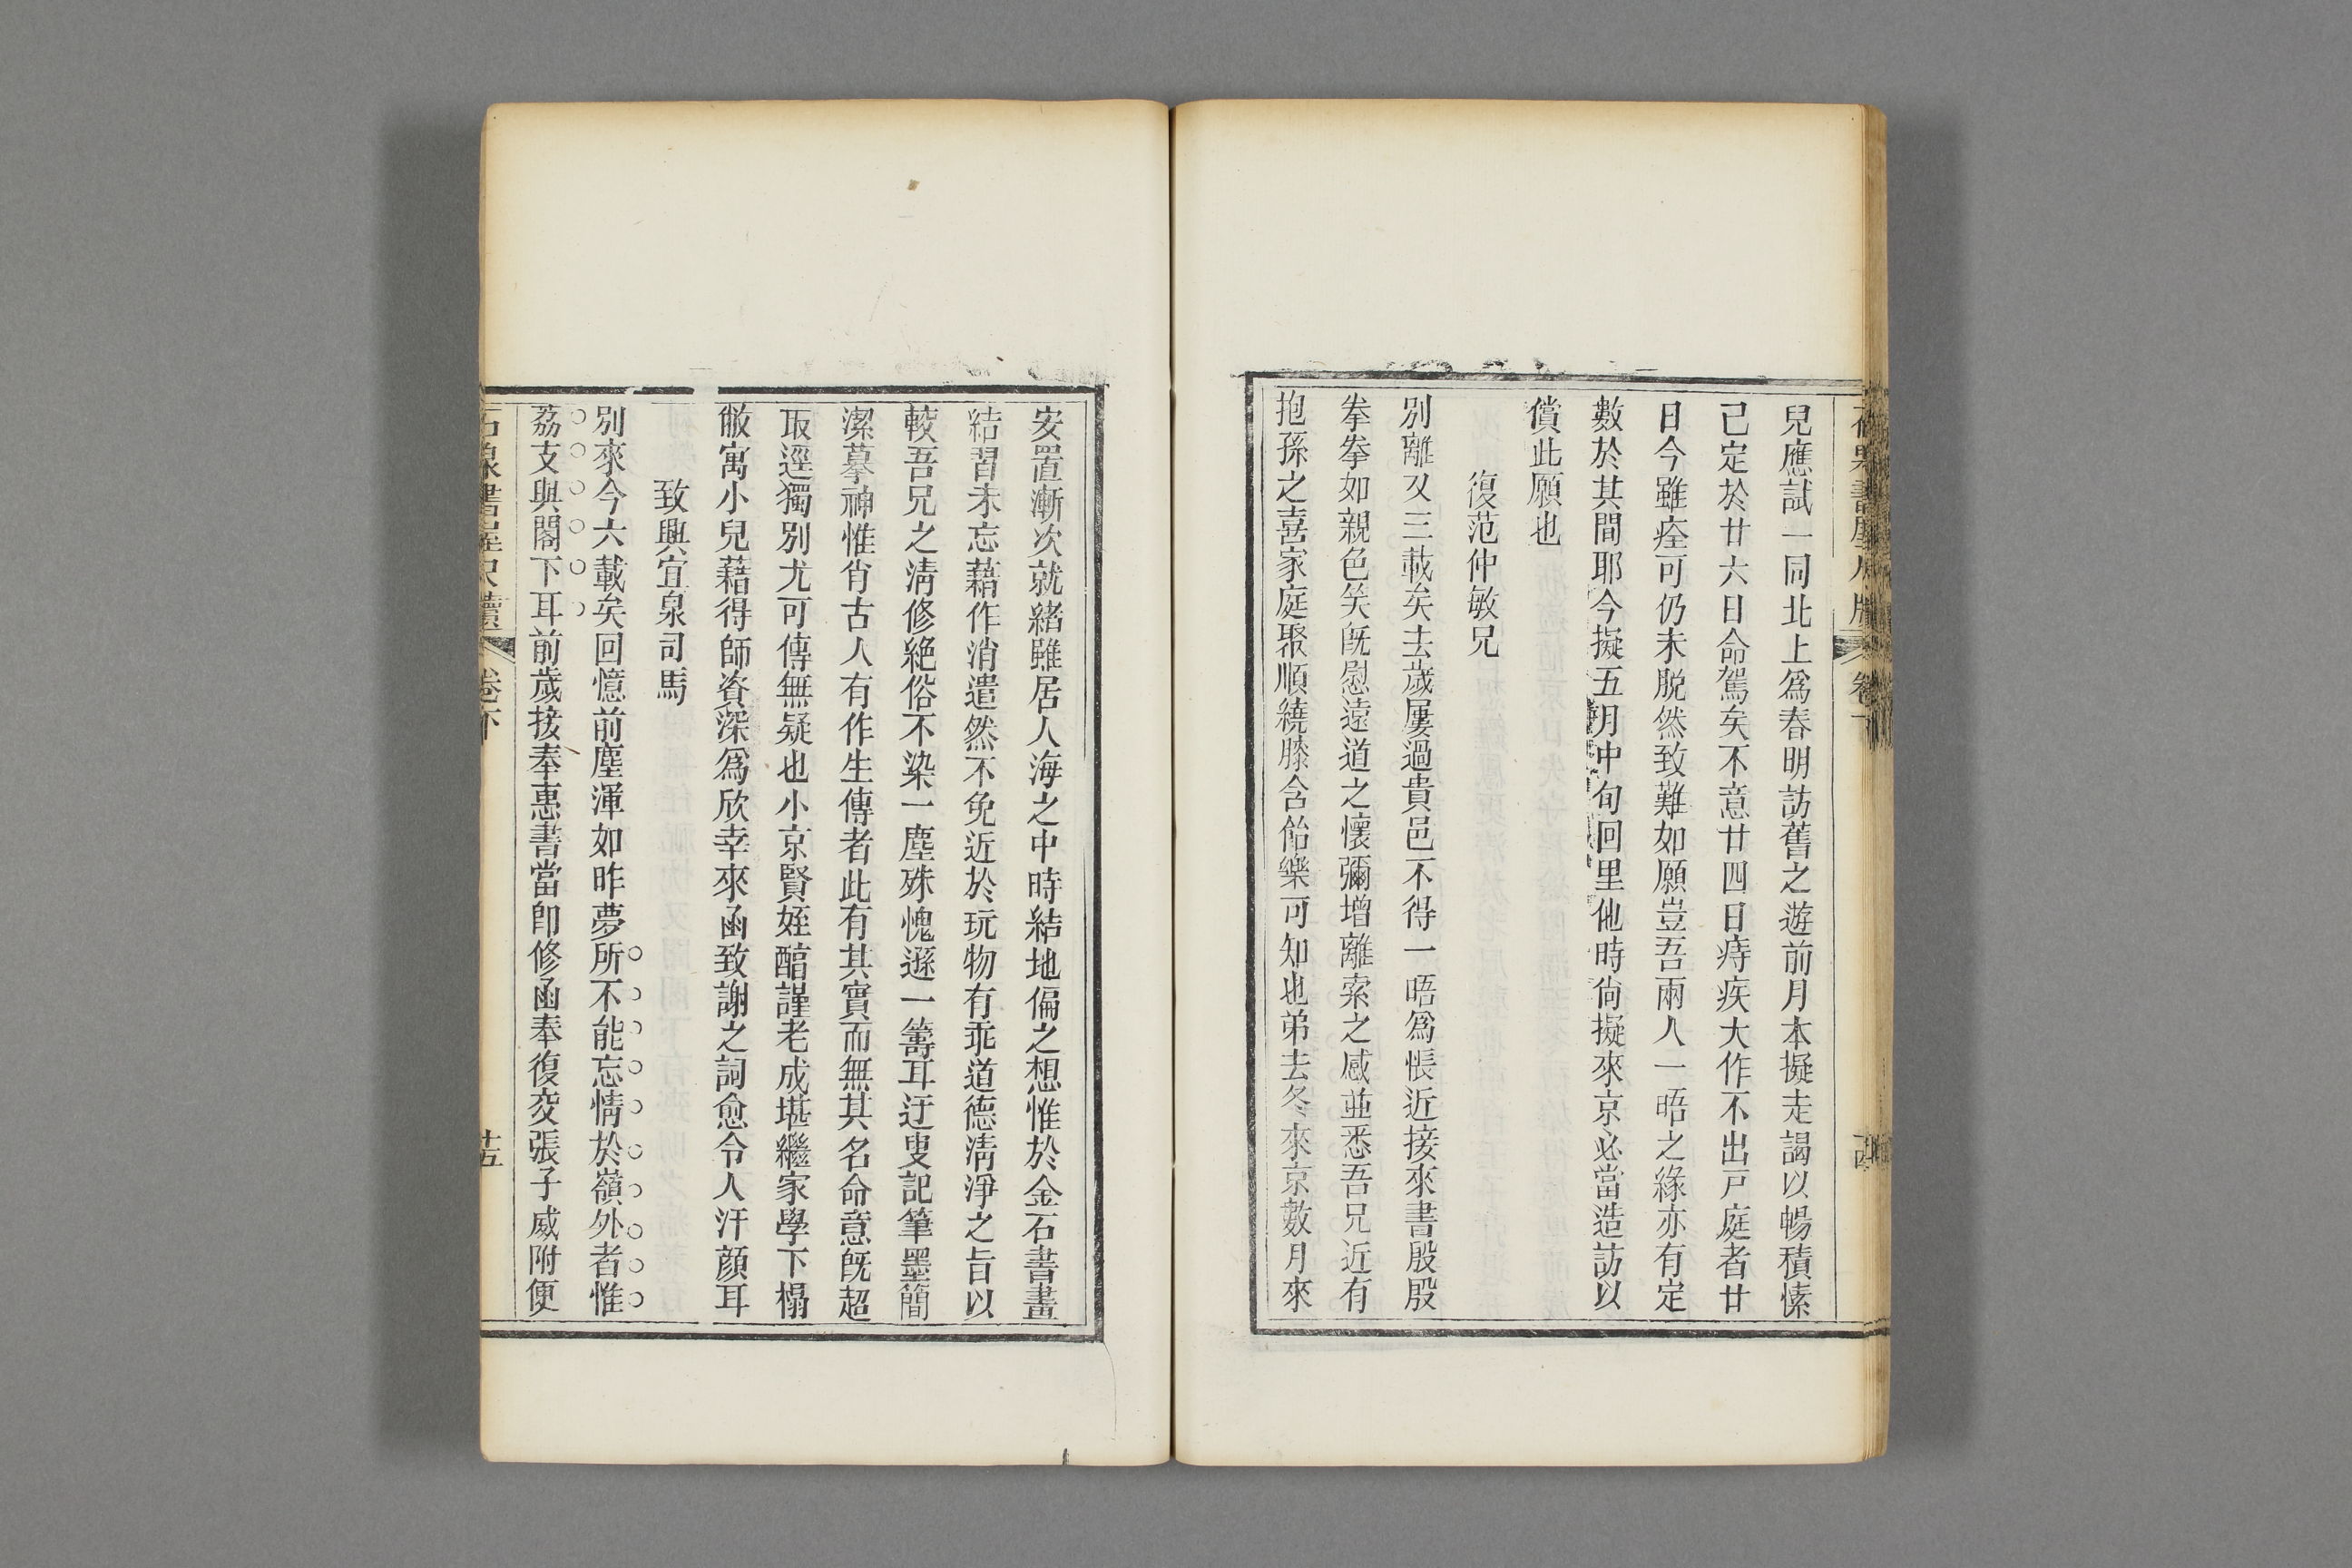 兒應試一同北上爲春明訪舊之遊前月本擬走謁以暢積愫
己定於廿六日命駕矣不意廿四日痔疾大作不出戸庭者廿
日今雖痊可仍未脫然致難如願豈吾兩人一晤之緣亦有定
數於其間耶今擬五月中旬回里他時尙擬來京必當造訪以
償此願也
復范仲敏兄
別離又三載矣去歲屢過貴邑不得一晤爲悵近接來書殷殷
拳拳如親色笑旣慰遠道之懷彌增離索之感並悉吾兄近有
抱孫之喜家庭聚順繞膝含飴樂可知也弟去冬來京數月來
安置漸次就緒雖居人海之中時結地偏之想惟於金石書畫
結習未忘藉作消遣然不免近於玩物有乖道德淸淨之旨以
較吾兄之淸修絶俗不染一塵殊愧遜一籌耳迂叟記筆墨簡
潔摹神惟肖古人有作生傳者此有其實而無其名命意旣超
取逕獨別尤可傳無疑也小京賢姪醅謹老成堪繼家學下榻
敝寓小兒藉得師資深爲欣幸來函致謝之詞愈令人汗顔耳
致興宜泉司馬
別來今六載矣回憶前塵渾如昨夢所不能忘情於嶺外者惟
荔支與閣下耳前歲接奉惠書當卽修函奉復交張子威附便
石泉書屋尺牘 卷下 十五